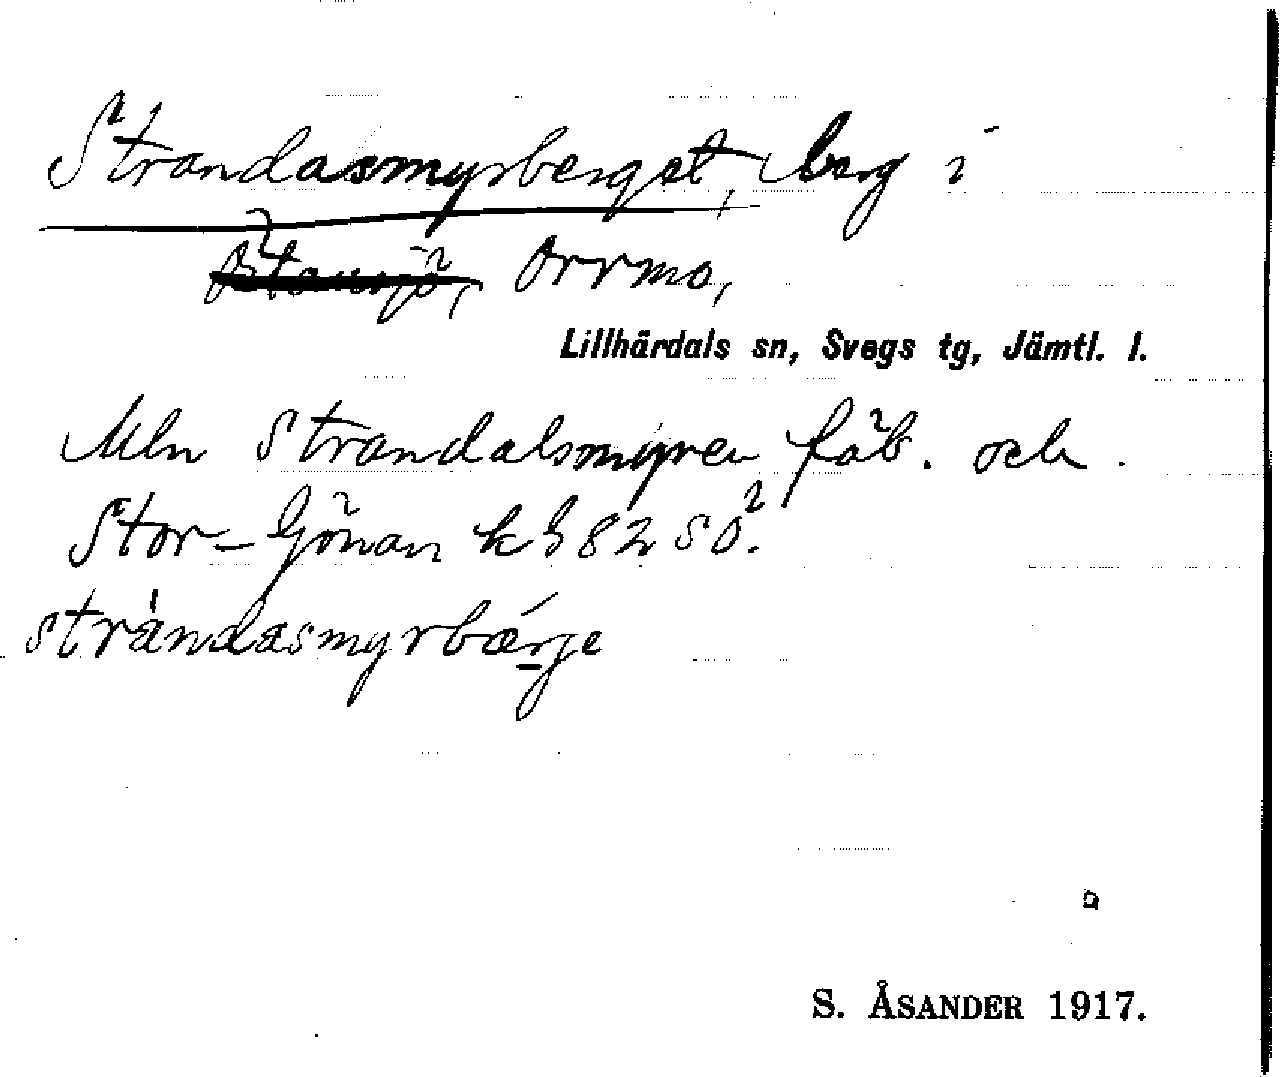 Strandasmyrberget, berg i
Orrmo,
Lillhärdals sn, Svegs tg, Jämtl. l.
Mln Strandalsmyren fäb. och
Stor-Gönan k 82 SÖ.
strándasmyrbærje
S. ÅSANDER 1917.